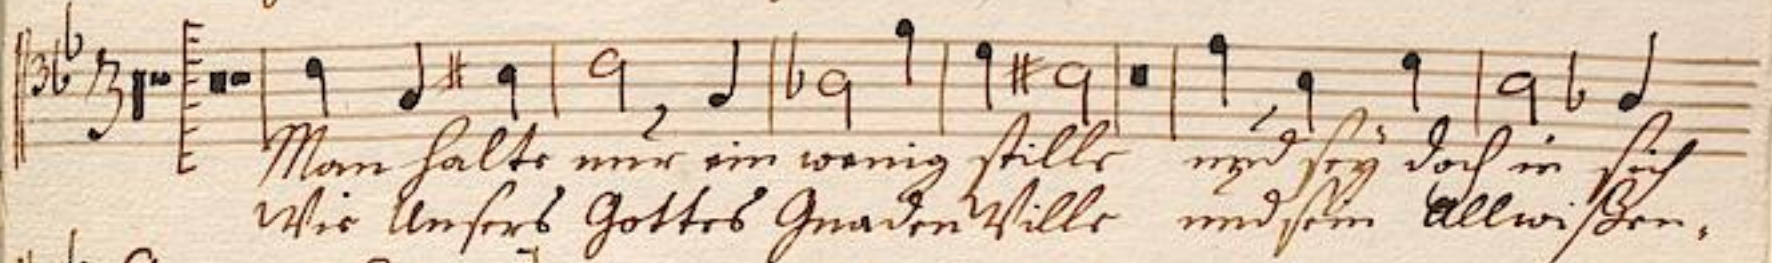 Man halte nur ein wenig stille und sey doch in sich
Wie Unsers Gottes Gnaden Wille und sein Allwißen,